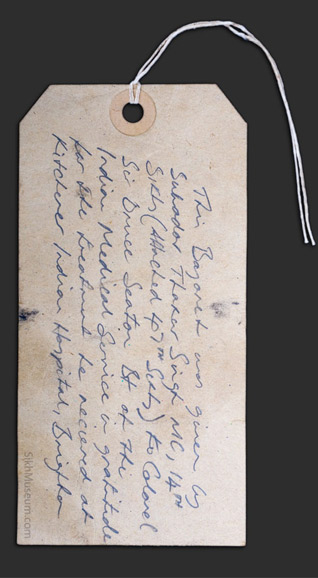 This Bayonet was given by
Subadar Thakur Singh MC, 14th
Sikhs (Attached 47th Sikhs) to Colonel
Sir Bruce Seaton Bt of the
Indian Medical Service in gratitude
for the treatment he received at
Kitchener Indian Hospital, Brighton
SikhMuseum.com